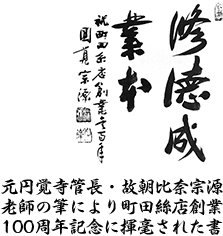 修徳成
業本
祝町田絲店創業一百年
圓覚宗源
元円覚寺管長・故朝比奈宗源
老師の筆により町田絲店創業
100周年記念に揮毫された書